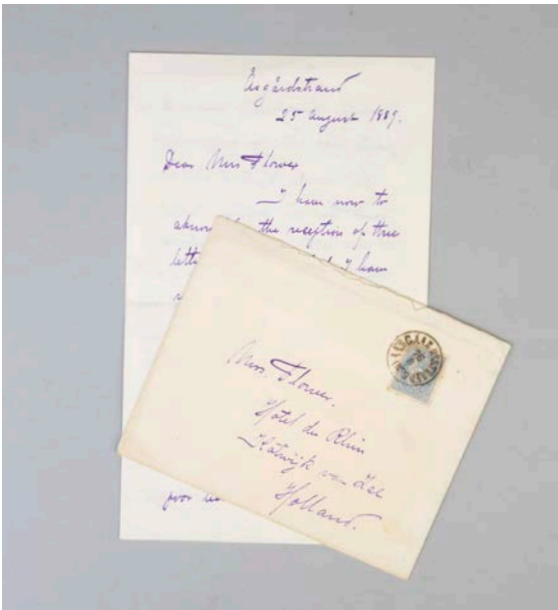 Åsgårdstrand
25 August 1889.
Dear Mrs Flower
I have now to
the reception of three
I have
Mrs. Flower.
Hotel du Rhin
Katwijk van Zee
Holland.